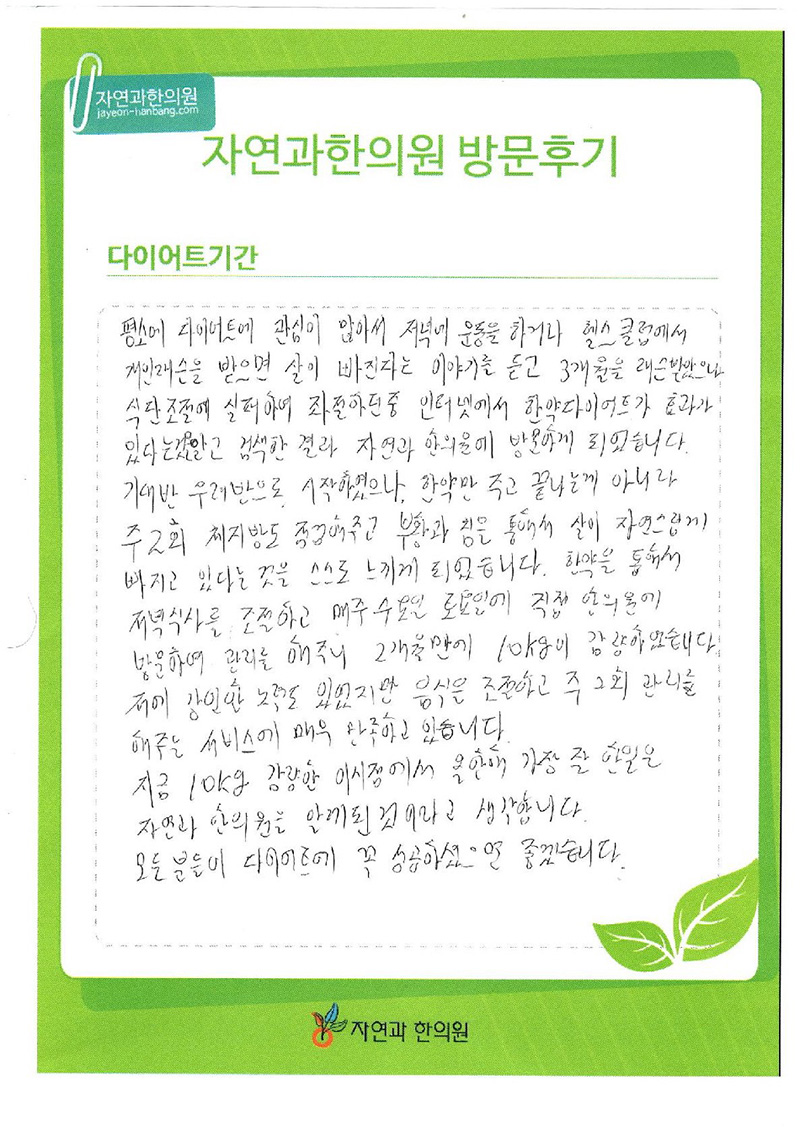 자연과한의원
jayeon-hanbang.com
자연과한의원 방문후기
다이어트기간
평소에 다이어트에 관심이 많아서 저녁에 운동을 하거나 헬스클럽에서
개인래슨을 받으면 살이 빠진다는 이야기를 듣고 3개월을 래슨받았으나
식단조절에 실패하여 좌절하던중 인터넷에서 한약다이어트가 효과가
있다는것을알고 검색한 결과 자연과 한의원에 방문하게 되었습니다.
기대반 우려반으로 시작하였으나, 한약만 주고 끝나는게 아니라
주2회 체지방도 점검해주고 부황과 침을 통해서 살이 자연스럽게
빠지고 있다는 것을 스스로 느끼게 되었습니다. 한약을 통해서
저녁식사를 조절하고 매주 수요일 토요일에 직접 한의원에
방문하여 관리를 해주니 2개월만에 10kg이 감량하였습니다.
저에 강인한 노력도 있었지만 음식을 조절하고 주 2회 관리를
해주는 서비스에 매우 만족하고 있습니다.
지금 10kg 감량한 이시점에서 올한해 가장 잘 한일은
자연과 한의원을 알게된 것이라고 생각합니다.
모든 분들이 다이어트에 꼭 성공하셨으면 좋겠습니다.
자연과 한의원